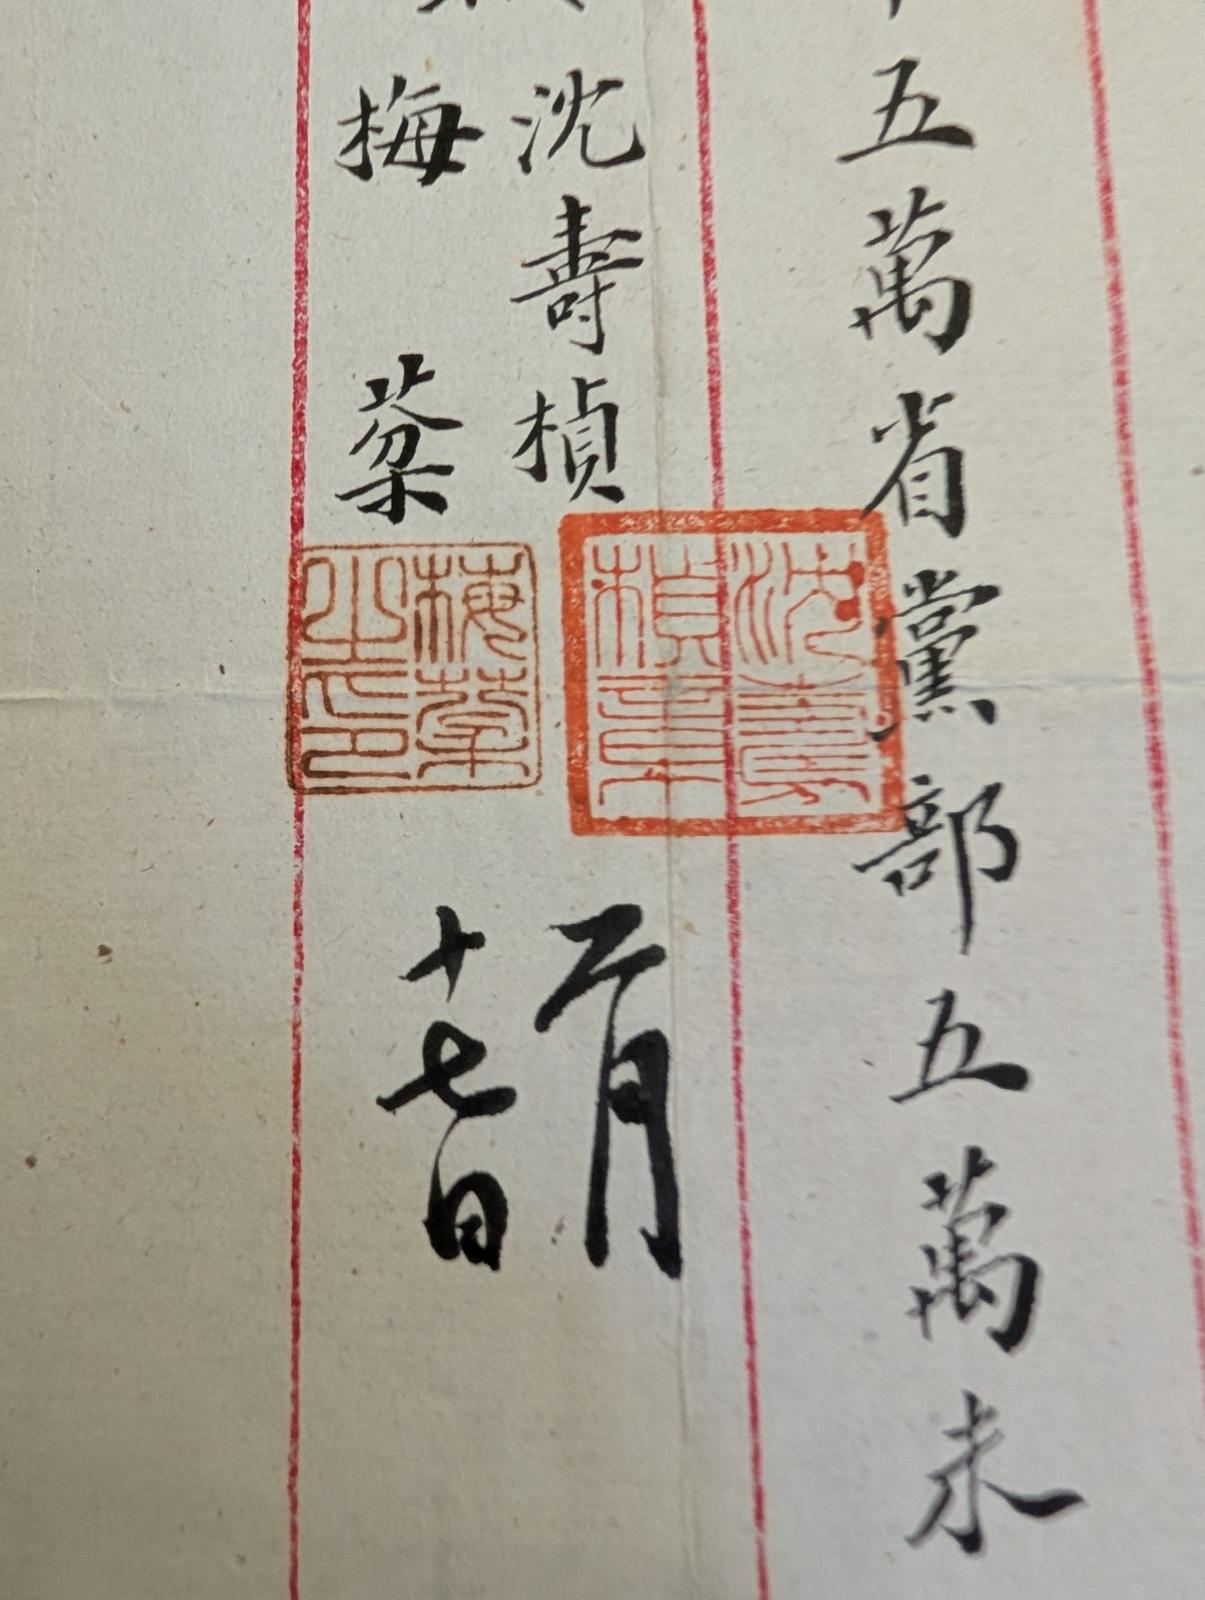 五萬省黨部五萬未
沈壽楨
沈壽楨章
二月
梅棻
梅棻之印
十七日